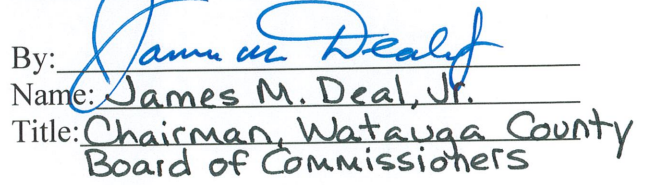 By: James M Deal Jr
Name: James M. Deal, Jr.
Title: Chairman, Watauga County
Board of Commissioners